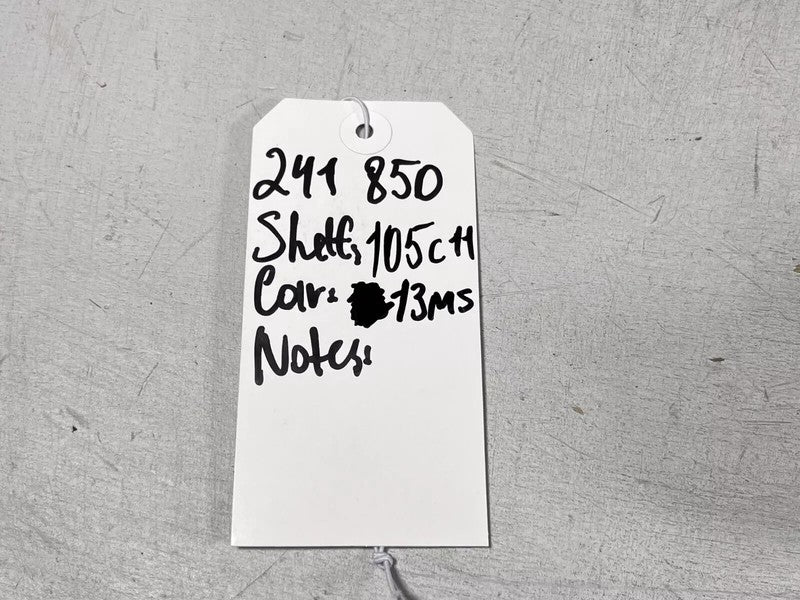 241 850
Shelf: 105CH
Car: 13MS
Notes: